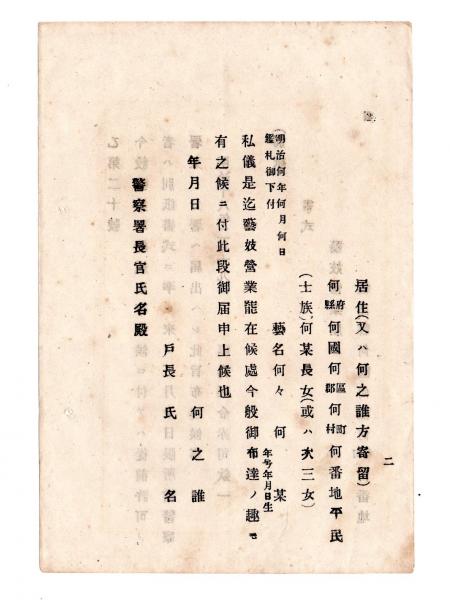 二
居住(又ハ何之誰方寄留)
何府縣何國何區郡何町村何番地平民
(士族)何某長女(或ハ次三女)
藝名何々 何 某 年号年月日生
(明治何年何月何日
鑑札御下付
私儀是迄藝妓營業罷在候處今般御布達ノ趣モ
有之候ニ付此段御届申上候也
年月日 何之誰
戸長氏名
警察署長官氏名殿